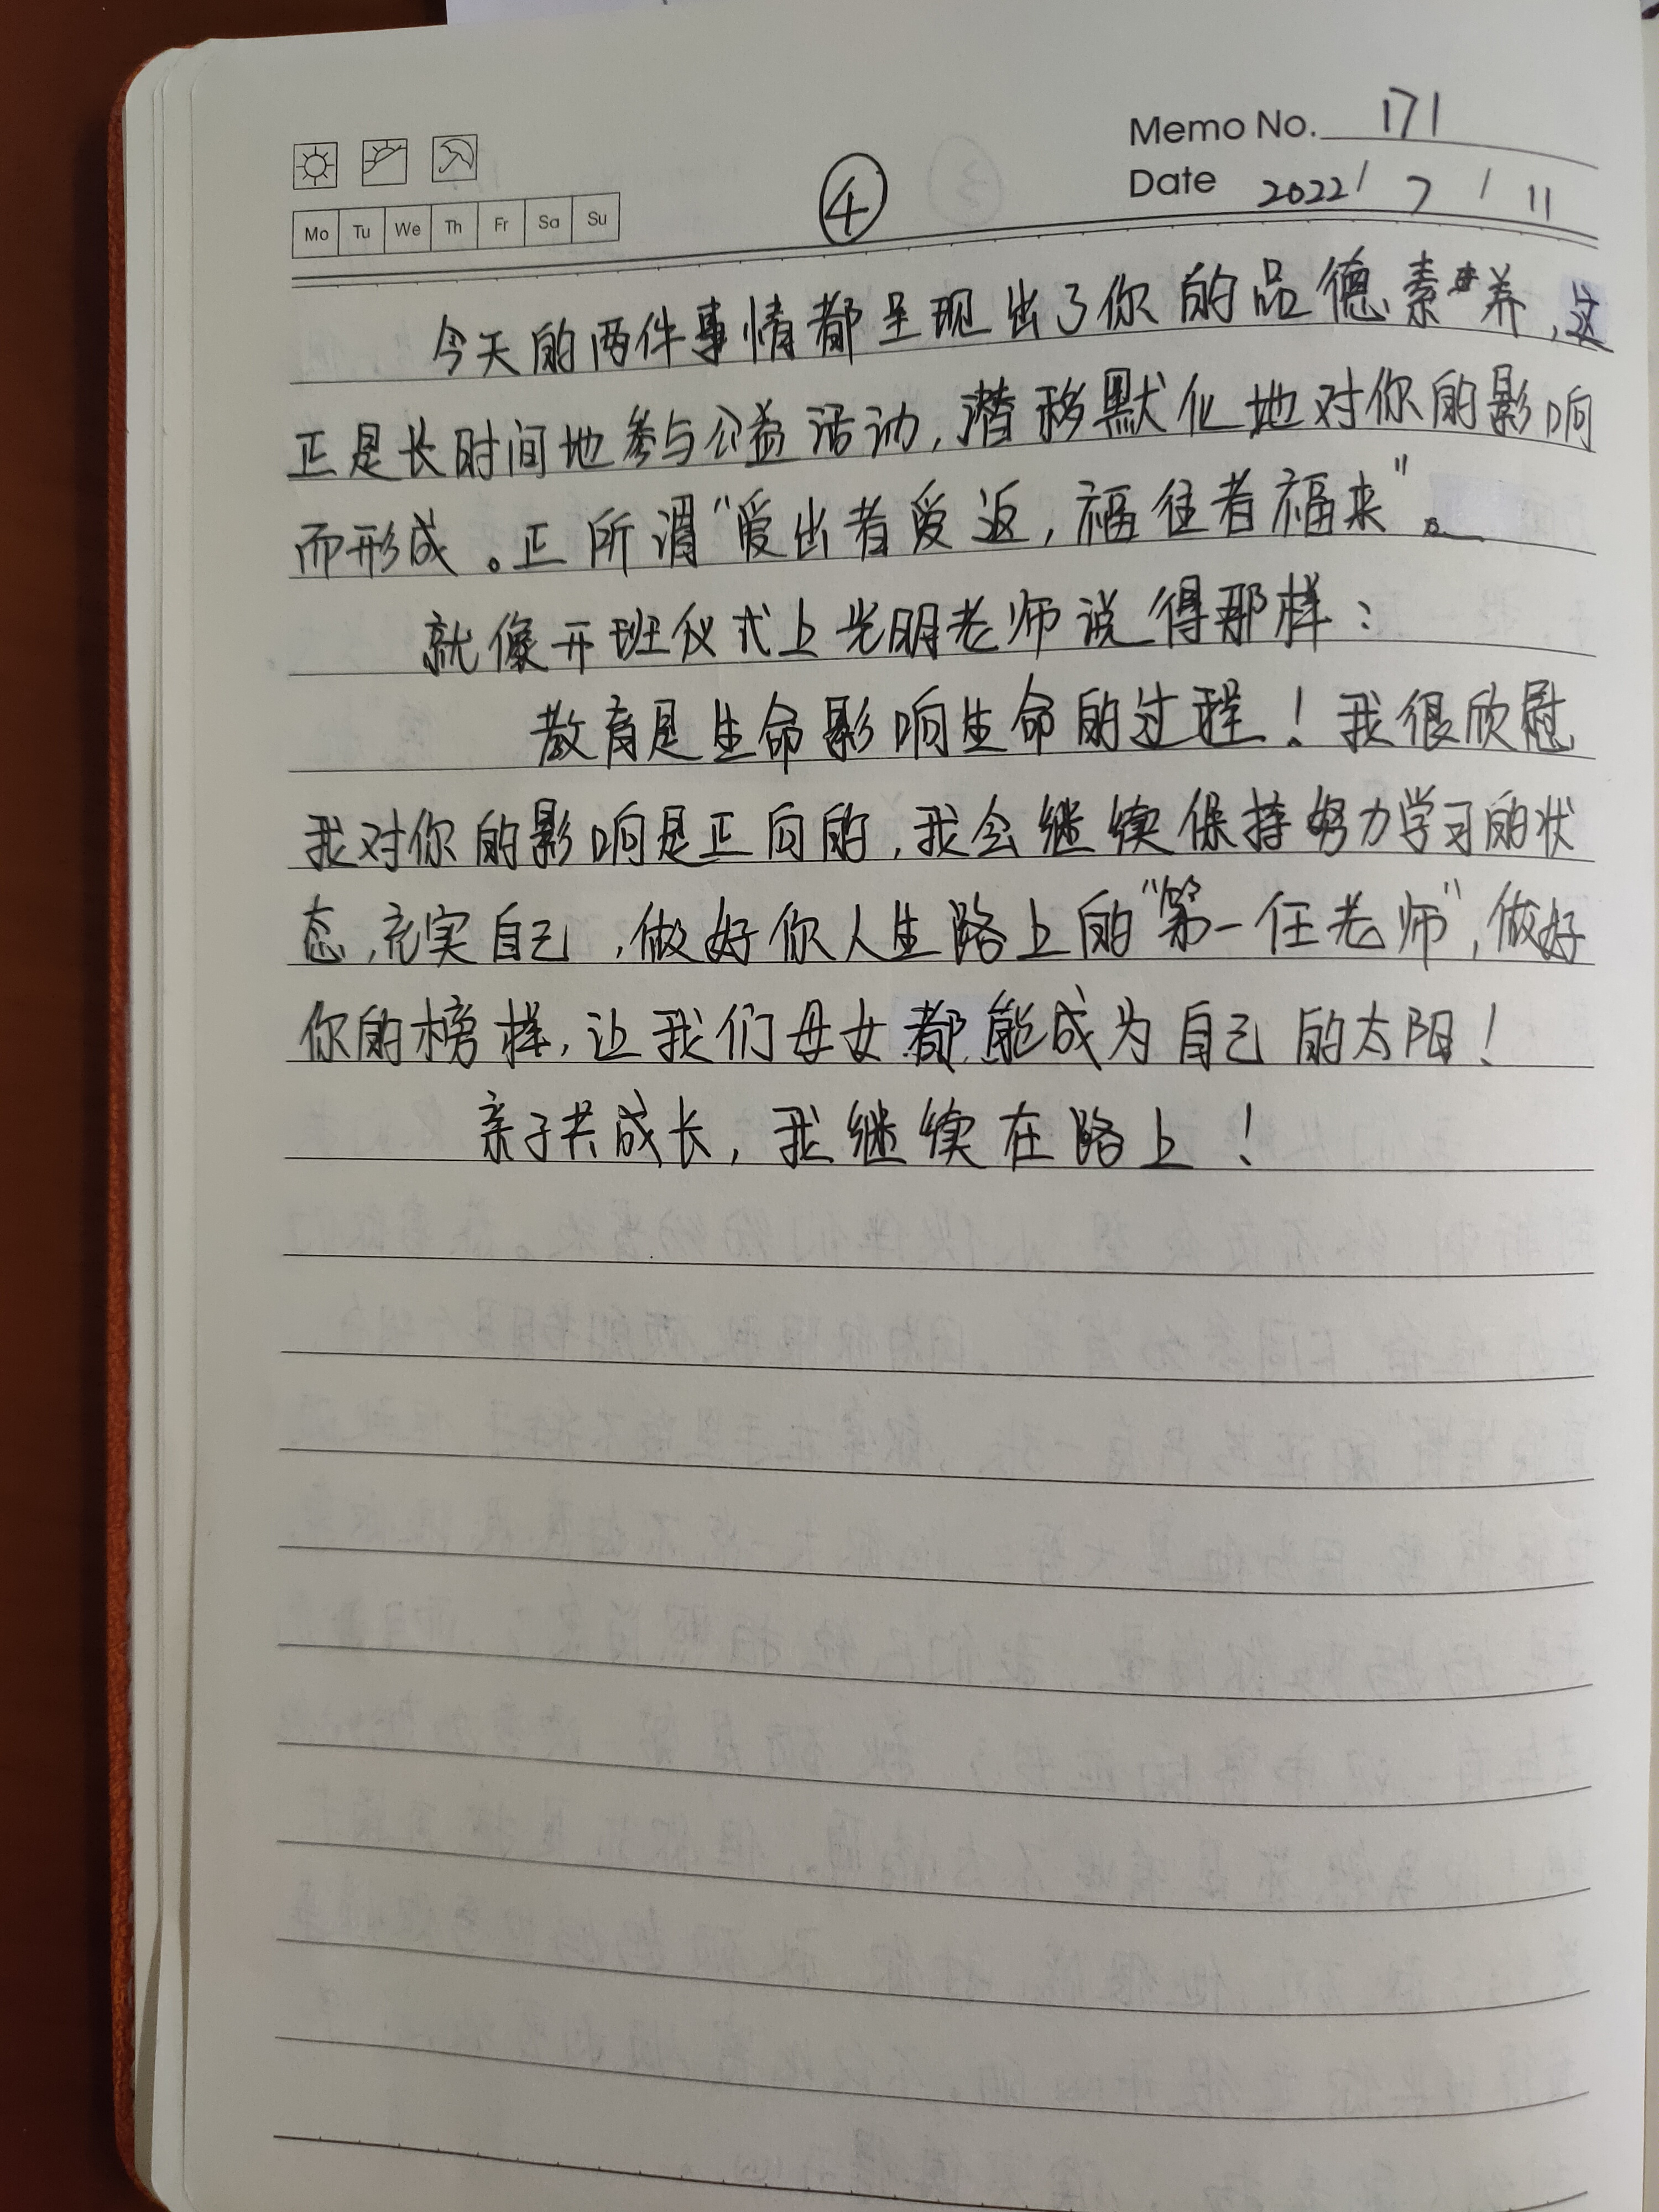 Memo No. 171
④
Date 2022/7/11
Mo Tu We Th Fr Sa Su
今天的两件事情都呈现出了你的品德素养,这
正是长时间地参与公益活动,潜移默化地对你的影响
而形成。正所谓“爱出者爱返,福往者福来”。
就像开班仪式上光明老师说得那样:
教育是生命影响生命的过程!我很欣慰
我对你的影响是正向的,我会继续保持努力学习的状
态,充实自己,做好你人生路上的“第一任老师”,做好
你的榜样,让我们母女都能成为自己的太阳!
亲子共成长,我继续在路上!